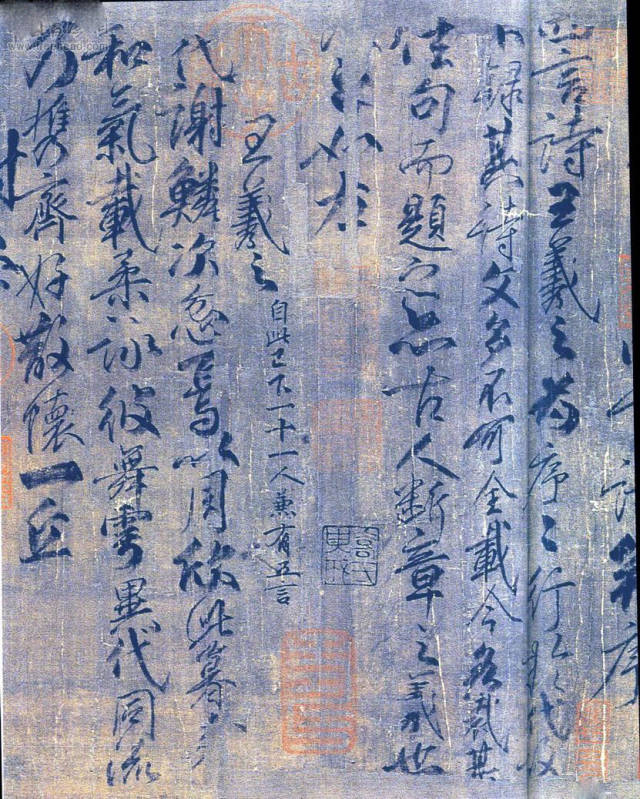 四言詩王羲之為序〻行於代故
不錄其詩文多不可全載今各裁其
佳句而題之亦古人斷章之義也
如左
王羲之 自此已下一十一人兼有五言
代謝鱗次忽焉以周欣此暮春
和氣載柔詠彼舞雩異代同流
乃攜齊好散懷一丘